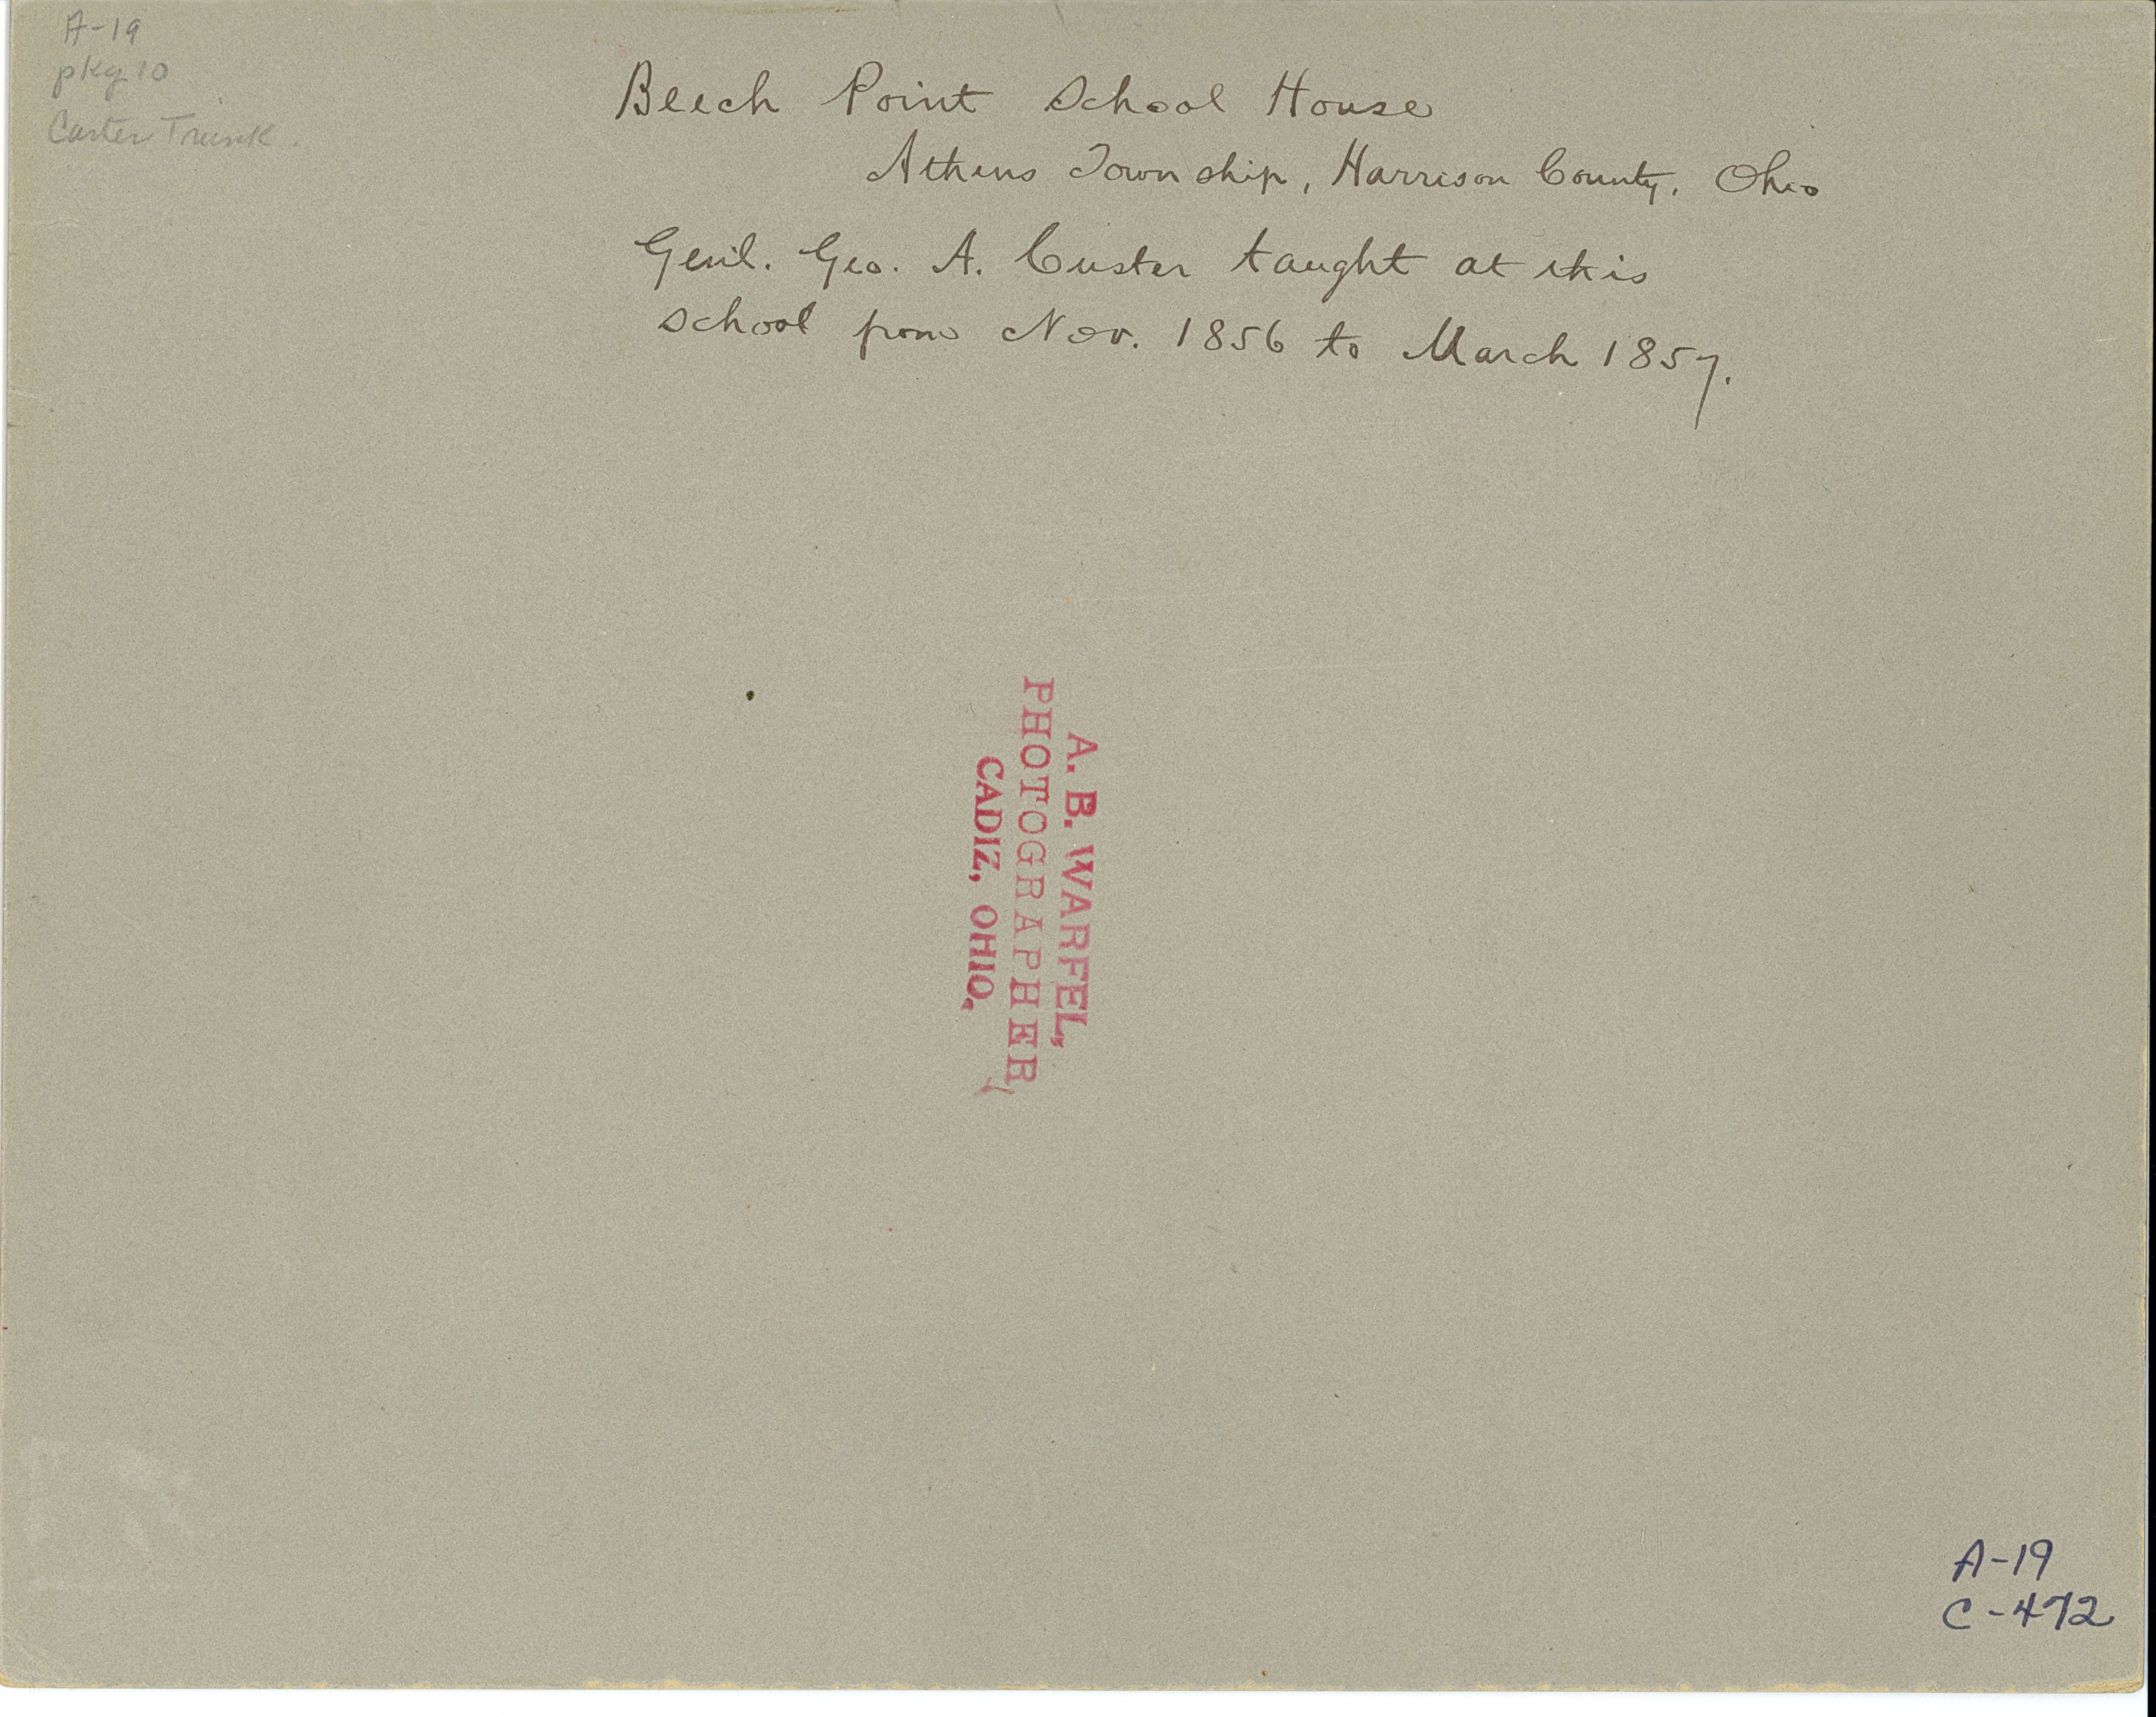 A-19
pkg 10
Carter Trunk.
Beech Point School House
Athens Township, Harrison County, Ohio
Genl. Geo. A. Custer taught at this
school from Nov. 1856 to March 1857.
A. B. WARFEL,
PHOTOGRAPHER
CADIZ, OHIO.
A-19
C-472